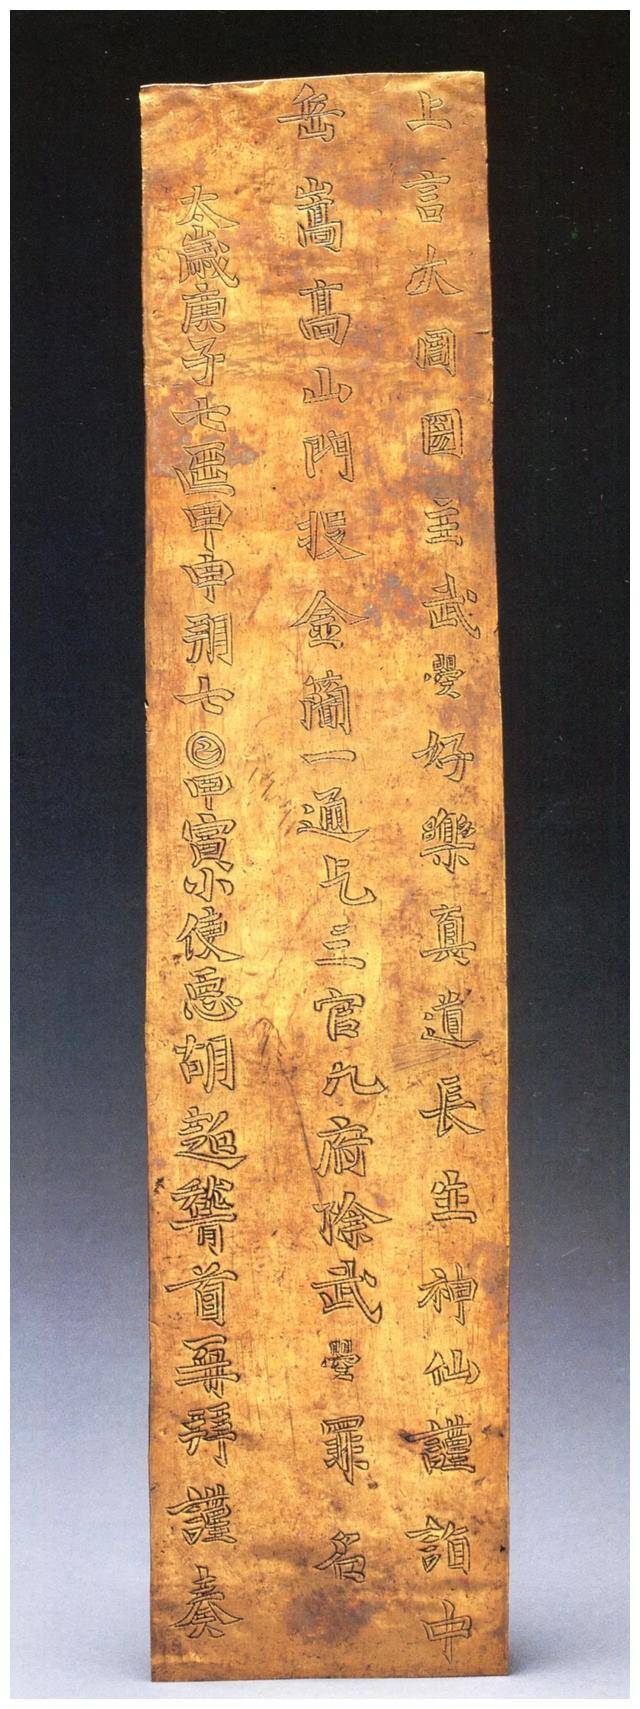 上言大周圀主武曌好樂真道長生神仙謹詣中
岳嵩高山門投金簡一通乞三官九府除武曌罪名
太歲庚子七𠥱甲申朔七𡆠甲寅小使𢘑胡超稽首再拜謹奏